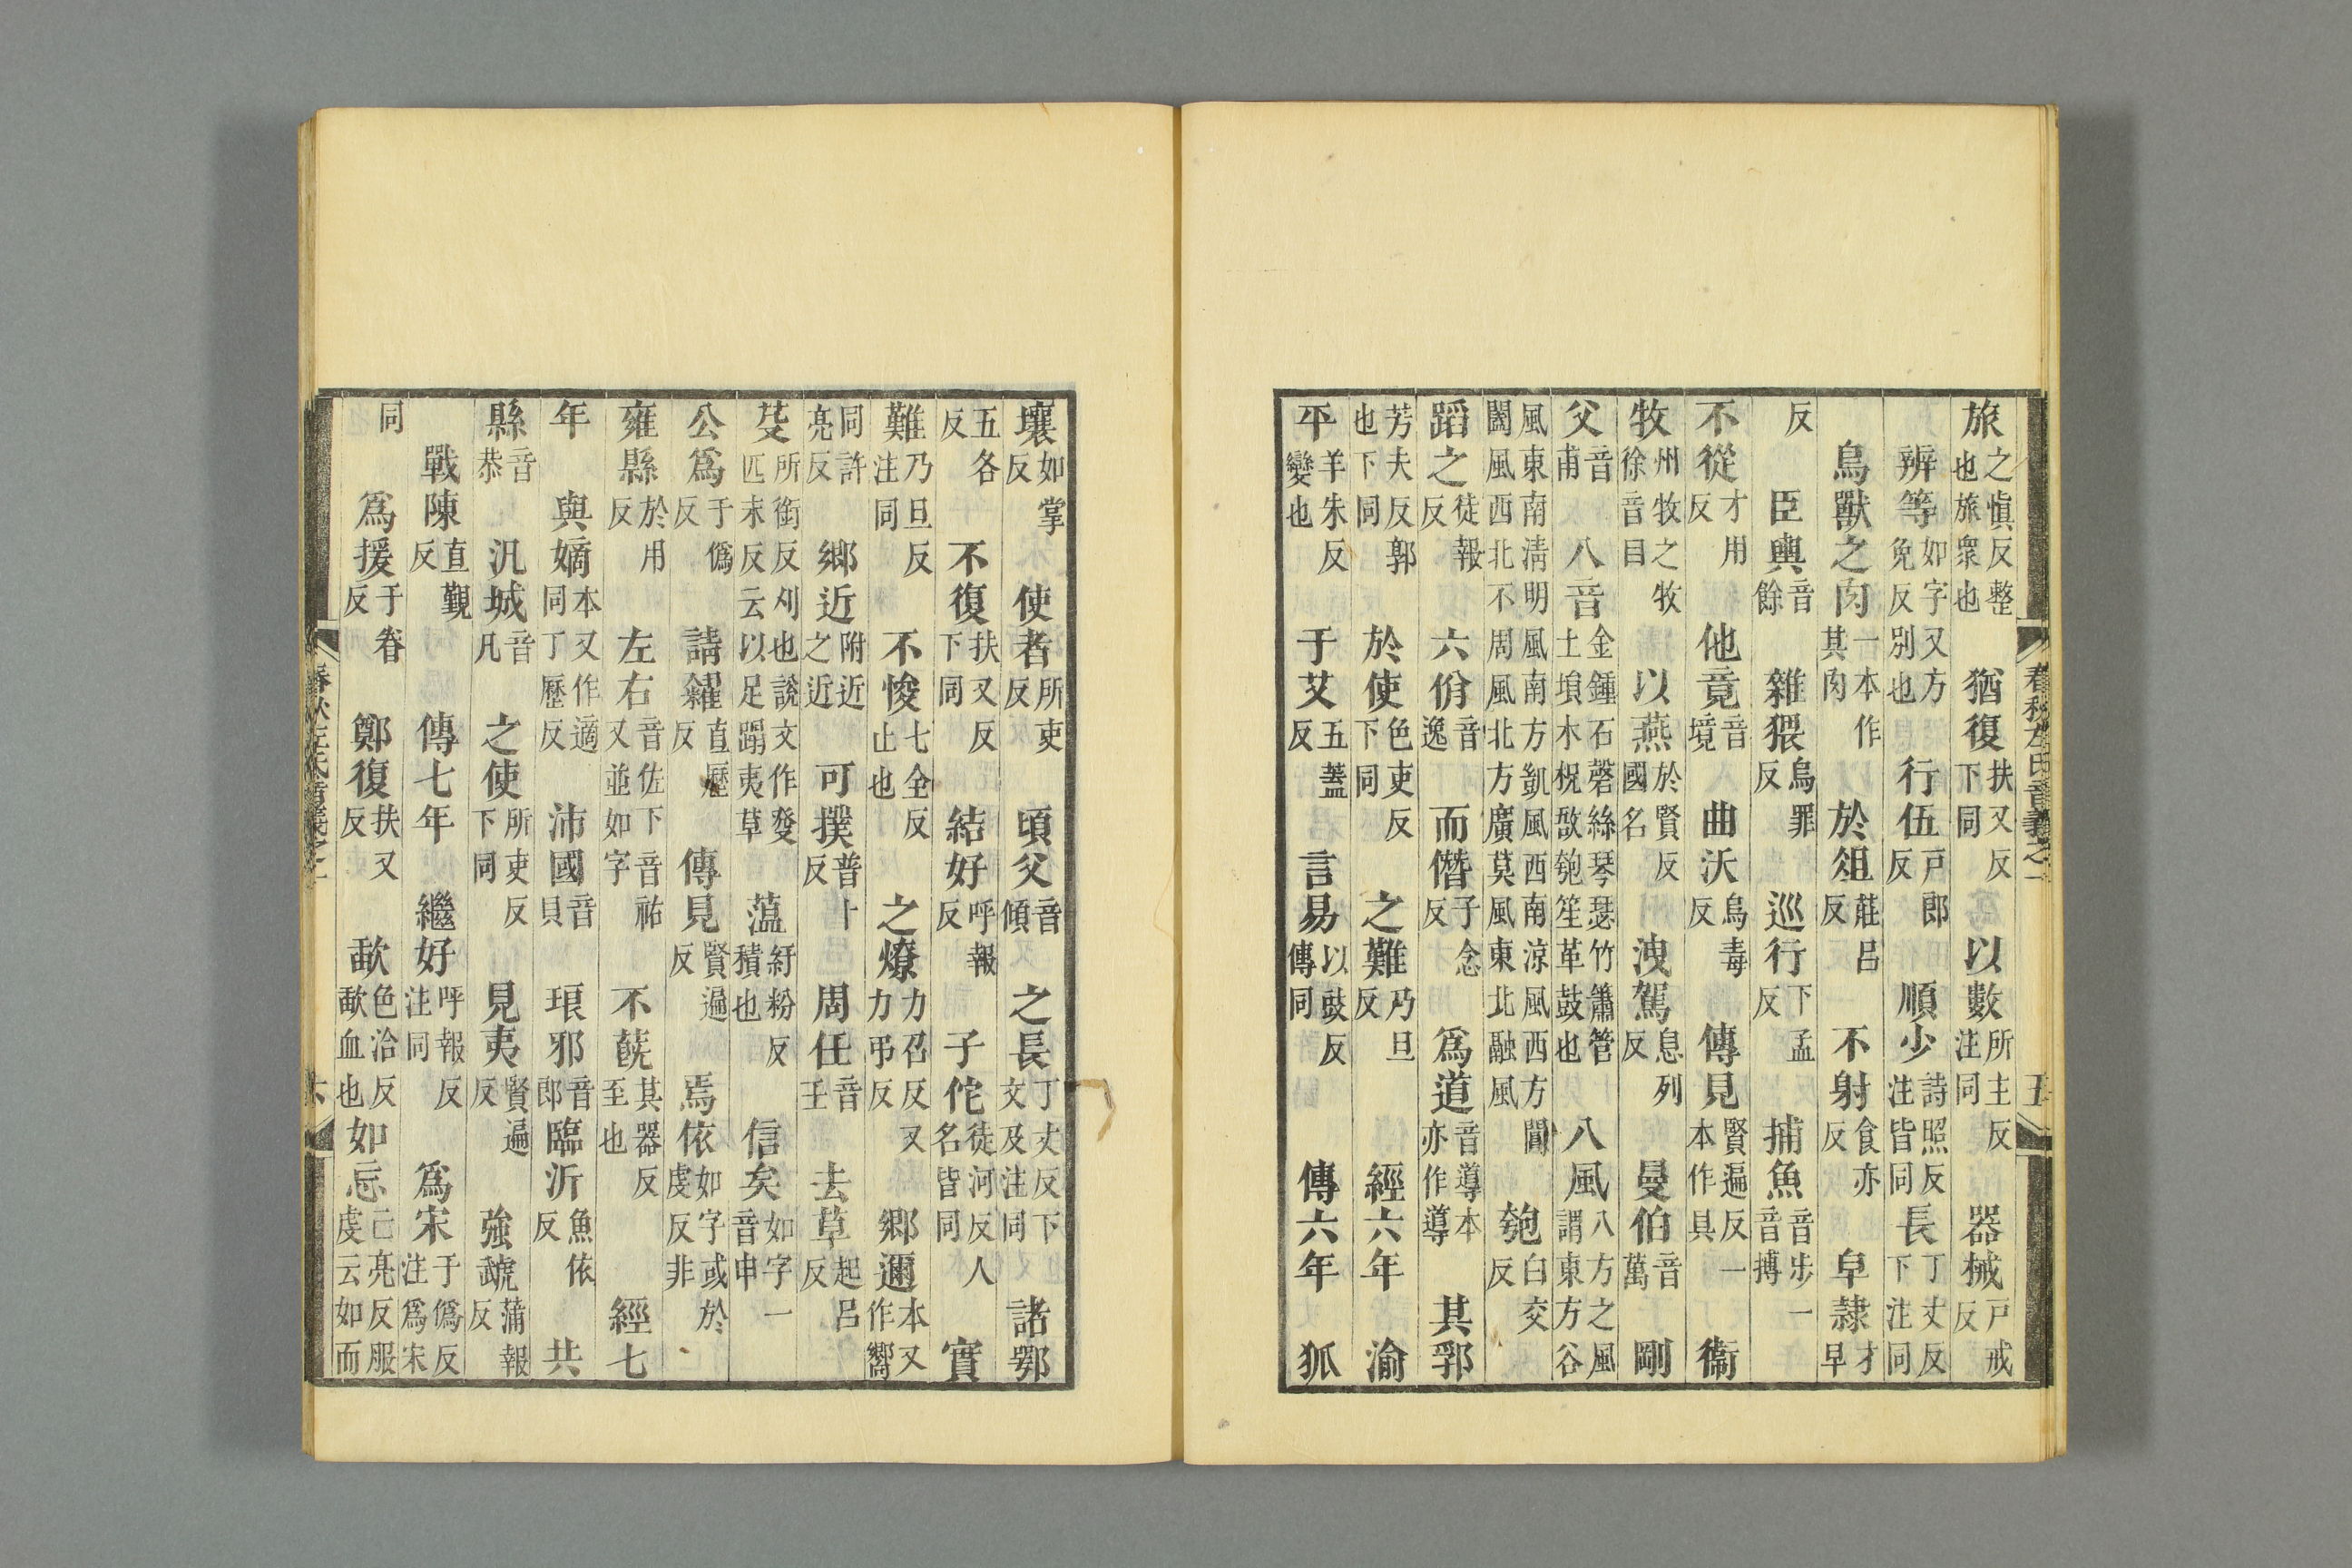 春秋左氏音義之一 五
旅之愼反整也旅衆也 猶復扶又反下同 以數所主反注同 器械戶戒反
辨等如字又方免反別也 行伍戶郎反 順少詩照反注皆同 長丁丈反下注同
鳥獸之肉一本作其肉 於俎莊呂反 不射食亦反 皁隸才早
反 臣輿音餘 雜猥烏罪反 巡行下孟反 捕魚音步一音搏
不從才用反 他竟音境 曲沃烏毒反 傳見賢遍反一本作具 衞
牧州牧之牧徐音目 以燕於賢反國名 洩駕息列反 曼伯音萬 剛
父音甫 八音金鍾石磬絲琴瑟竹簫管土塤木柷敔匏笙革鼓也 八風八方之風謂東方谷
風東南淸明風南方凱風西南涼風西方閶闔風西北不周風北方廣莫風東北融風 匏白交反
蹈之徒報反 六佾音逸 而僭子念反 爲道音導本亦作導 其郛
芳夫反郭也下同 於使色吏反下同 之難乃旦反 經六年 渝
平羊朱反變也 于艾五蓋反 言易以豉反傳同 傳六年 狐
壤如掌反 使者所吏反 頃父音傾 之長丁丈反下文及注同 諸鄂
五各反 不復扶又反下同 結好呼報反 子佗徒河反人名皆同 實
難乃旦反注同 不悛七全反止也 之燎力召反又力弔反 鄉邇本又作嚮
同許亮反 鄉近附近之近 可撲普卜反 周任音壬 去草起呂反
芟所銜反刈也說文作癹匹末反云以足蹋夷草 薀紆粉反積也 信矣如字一音申
公爲于僞反 請糴直歷反 傳見賢遍反 焉依如字或於虔反非
雍縣於用反 左右音佐下音祐又並如字 不蔇其器反至也 經七
年 與嫡本又作適同丁歷反 沛國音貝 琅邪音郎 臨沂魚依反 共
縣音恭 汎城音凡 之使所吏反下同 見夷賢遍反 強虣蒲報反
戰陳直覲反 傳七年 繼好呼報反注同 爲宋于僞反注爲宋
同 爲援于眷反 鄭復扶又反 歃色洽反歃血也 如忘亡亮反服虔云如而
春秋左氏音義之一 六